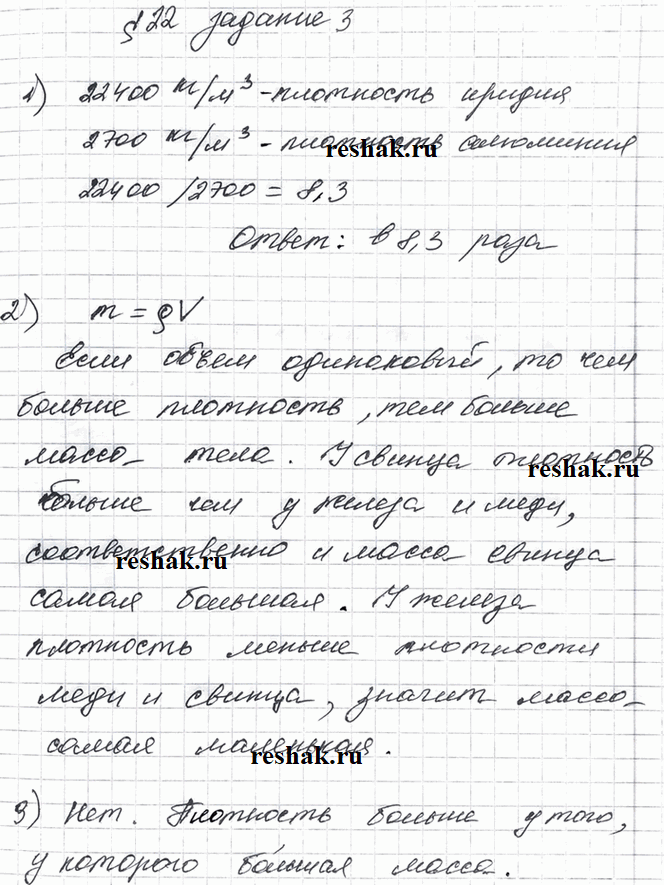 § 22 задание 3
1) 22400 кг/м³ - плотность иридия
2700 кг/м³ - плотность алюминия
reshak.ru
22400 / 2700 = 8,3
Ответ: в 8,3 раза
2) m = ρV
Если объем одинаковый, то чем
больше плотность, тем больше
масса тела. У свинца плотность
reshak.ru
больше чем у железа и меди,
соответственно и масса свинца
reshak.ru
самая большая. У железа
плотность меньше плотности
меди и свинца, значит масса
самая маленькая.
reshak.ru
3) Нет. Плотность больше у того,
у которого бо́льшая масса.